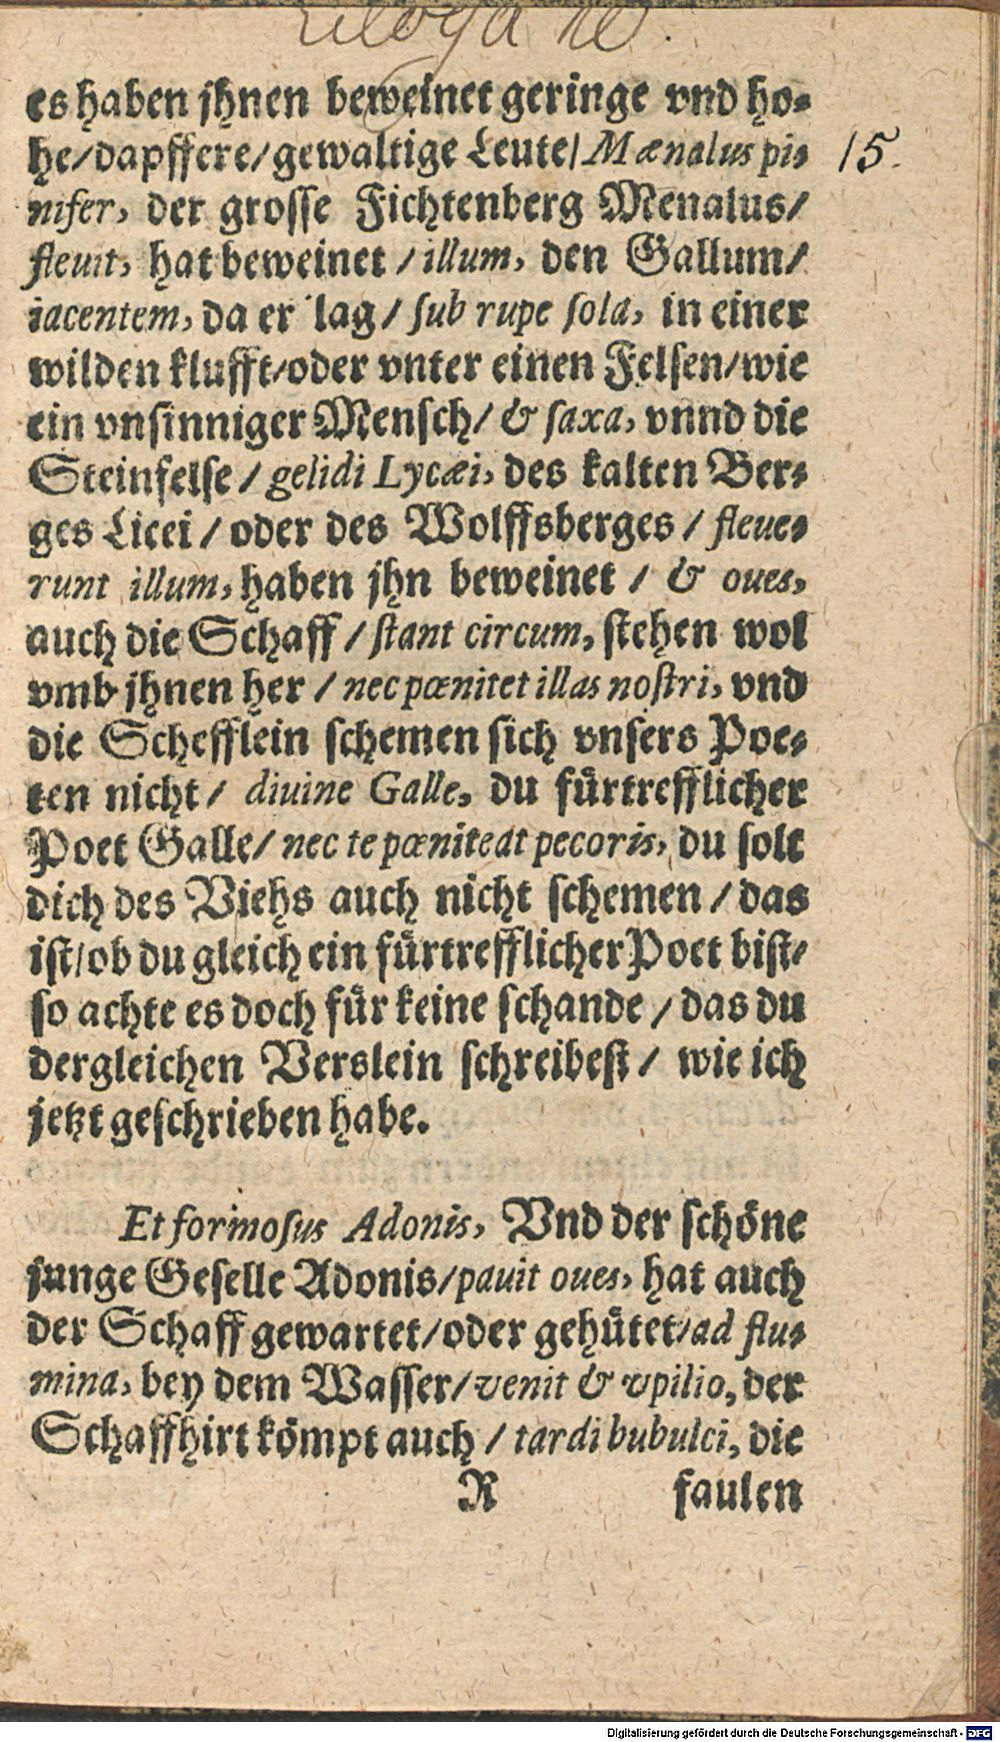 Ecloga 10.
es haben jhnen beweinet geringe vnd ho-
he/dapffere/gewaltige Leute/ Mænalus pi- 15.
nifer, der grosse Fichtenberg Menalus/
fleuit, hat beweinet / illum, den Gallum/
iacentem, da er lag / ſub rupe ſola, in einer
wilden klufft/oder vnter einen Felſen/wie
ein vnſinniger Menſch/ & ſaxa, vnnd die
Steinfelſe / gelidi Lycæi, des kalten Ber-
ges Licei / oder des Wolffsberges / fleue-
runt illum, haben jhn beweinet / & oues,
auch die Schaff / ſtant circum, ſtehen wol
vmb jhnen her / nec pœnitet illas noſtri, vnd
die Schefflein ſchemen ſich vnſers Poe-
ten nicht / diuine Galle, du fürtrefflicher
Poet Galle/ nec te pœniteat pecoris, du ſolt
dich des Viehs auch nicht ſchemen / das
iſt/ob du gleich ein fürtrefflicher Poet biſt/
ſo achte es doch für keine ſchande / das du
dergleichen Verslein ſchreibeſt / wie ich
jetzt geſchrieben habe.
Et formoſus Adonis, Vnd der ſchöne
junge Geſelle Adonis/pauit oues, hat auch
der Schaff gewartet/oder gehütet/ad flu-
mina, bey dem Waſſer/venit & vpilio, der
Schaffhirt kömpt auch / tardi bubulci, die
R faulen
Digitalisierung gefördert durch die Deutsche Forschungsgemeinschaft - DFG